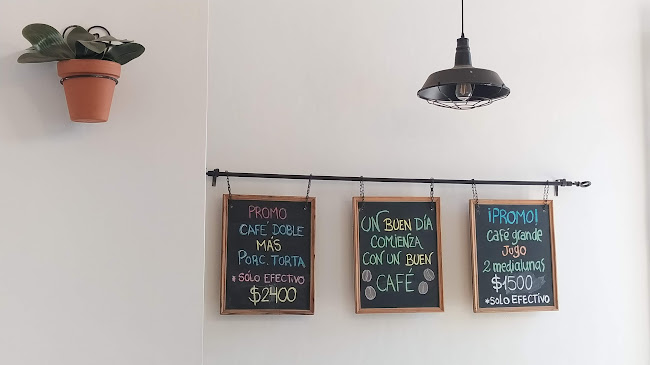 PROMO
CAFÉ DOBLE
MÁS
PORC. TORTA
*SÓLO EFECTIVO
$2400
UN BUEN DÍA
COMIENZA
CON UN BUEN
CAFÉ
¡PROMO!
Café grande
Jugo
2 medialunas
$1500
*SOLO EFECTIVO